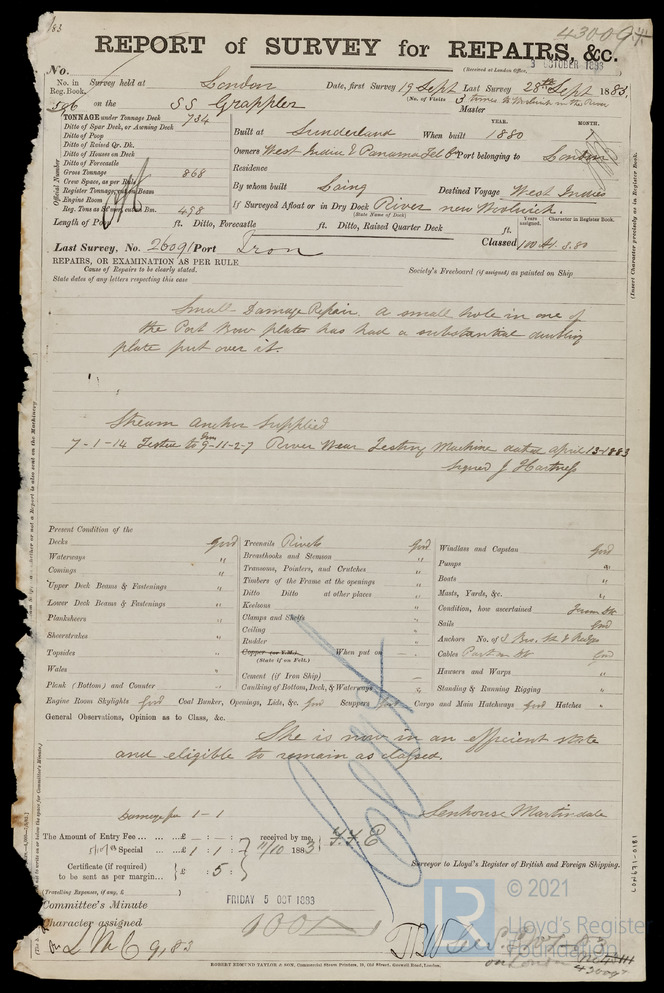 43009
REPORT of SURVEY for REPAIRS, &c.
(Received at London Office, 3 OCTOBER 1883)
No.
No. in Reg. Book. Survey held at London Date, first Survey 19 Sept Last Survey 28th Sept 1883.
(No. of Visits 3 times to Woolwich in the River
596 on the SS Grappler Master
TONNAGE under Tonnage Deck 734
Ditto of Spar Deck, or Awning Deck
Ditto of Poop
Ditto of Raised Qr. Dk.
Ditto of Houses on Deck
Ditto of Forecastle
Gross Tonnage 868
Crew Space, as per Rule
Register Tonnage, cut on Beam
Engine Room
Reg. Tons as St'mer, cut on Bm. 498
Official Number
YEAR. MONTH.
Built at Sunderland When built 1880
Owners West India & Panama Tel Co Port belonging to London
Residence
By whom built Laing Destined Voyage West Indies
If Surveyed Afloat or in Dry Dock River near Woolwich.
(State Name of Dock)
Length of Poop ft. Ditto, Forecastle ft. Ditto, Raised Quarter Deck ft.
Years assigned. Character in Register Book.
Last Survey, No. 2609 Port Iron Classed 100 A1 8.80
(Insert Character precisely as in Register Book.
REPAIRS, OR EXAMINATION AS PER RULE
Cause of Repairs to be clearly stated.
State dates of any letters respecting this case
Society's Freeboard (if assigned) as painted on Ship
Small Damage Repair. A small hole in one of
the Port Bow plates has had a substantial doubling
plate put over it.
Stream Anchor Supplied
7-1-14 Tested to 9-11-2-7 River Wear Testing Machine dated April 13 1883
Signed J Hartness
Present Condition of the
Decks Good
Waterways "
Comings "
Upper Deck Beams & Fastenings "
Lower Deck Beams & Fastenings "
Planksheers "
Sheerstrakes "
Topsides "
Wales "
Plank (Bottom) and Counter "
Treenails Rivets Good
Breasthooks and Stemson "
Transoms, Pointers, and Crutches "
Timbers of the Frame at the openings "
Ditto Ditto at other places "
Keelsons "
Clamps and Shelfs "
Ceiling "
Rudder "
Copper (or Y.M.) When put on
(State if on Felt.)
Cement (if Iron Ship)
Caulking of Bottom, Deck, & Waterways "
Windlass and Capstan Good
Pumps "
Boats "
Masts, Yards, &c. "
Condition, how ascertained From Dk
Sails Good
Anchors No. of
Cables Good
Hawsers and Warps "
Standing & Running Rigging "
Engine Room Skylights Good Coal Bunker, Openings, Lids, &c. Good Scuppers Good Cargo and Main Hatchways Good Hatches "
General Observations, Opinion as to Class, &c.
She is now in an efficient state
and eligible to remain as classed.
Damage fee 1-1
Senhouse Martindale
The Amount of Entry Fee ... £ : :
Special ... £ 1 : 1 : received by me, 11/10 1883
Certificate (if required) to be sent as per margin... £ : 5 :
(Travelling Expenses, if any, £ )
Surveyor to Lloyd's Register of British and Foreign Shipping.
Committee's Minute FRIDAY 5 OCT 1883
Character assigned 100 A1
LMC 9,83
ROBERT EDMUND TAYLOR & SON, Commercial Steam Printers, 19, Old Street, Goswell Road, London.
LR
© 2021
Lloyd's Register
Foundation
43009
LON671-0181